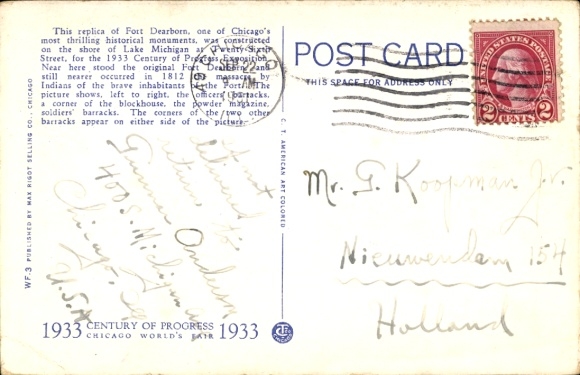 This replica of Fort Dearborn, one of Chicago's
most thrilling historical monuments, was constructed
on the shore of Lake Michigan at Twenty-Sixth
Street, for the 1933 Century of Progress Exposition.
Near here stood the original Fort Dearborn and
still nearer occurred in 1812 the massacre by
Indians of the brave inhabitants of the Fort. The
picture shows, left to right, the officers' barracks,
a corner of the blockhouse, the powder magazine,
soldiers' barracks. The corners of the two other
barracks appear on either side of the picture.
If not
delivered
return to
Gunnar Anderson
400 S. Michigan
Chicago, Ill
U.S.A
WF.3 PUBLISHED BY MAX RIGOT SELLING CO., CHICAGO
1933 CENTURY OF PROGRESS 1933
CHICAGO WORLD'S FAIR
C. T. AMERICAN ART COLORED
POST CARD
THIS SPACE FOR ADDRESS ONLY
UNITED STATES POSTAGE
2 CENTS 2
CHICAGO
22
Mr. G. Koopman Jr.
Nieuwendam 154
Holland